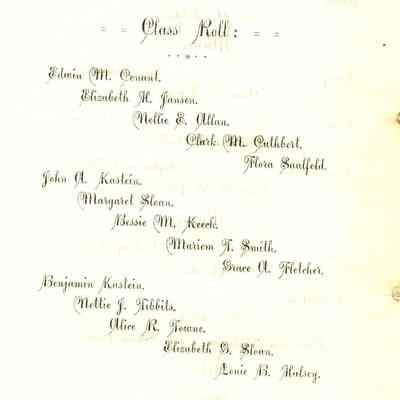 = = Class Roll : = =
Edwin M. Conant.
Elizabeth H. Jansen.
Nellie E. Allan.
Clark M. Cuthbert.
Flora Saulfeld.
John A. Kastein.
Margaret Sloan.
Bessie M. Keeck.
Mariom F. Smith.
Grace A. Fletcher.
Benjamin Kastein.
Nettie J. Tibbits.
Alice R. Towne.
Elizabeth G. Sloan.
Louie B. Halsey.